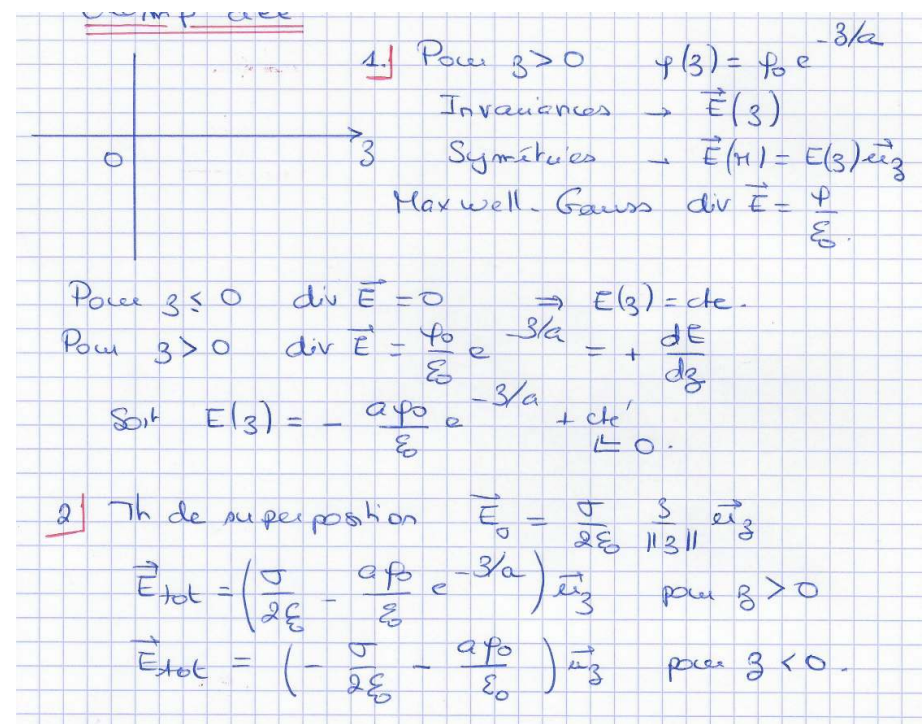 1. Pour z>0 ρ(z) = ρ₀ e^{-z/a}
Invariances → E⃗(z)
0 z Symétries → E⃗(M) = E(z) u⃗_z
Maxwell-Gauss div E⃗ = ρ/ε₀.
Pour z ≤ 0 div E⃗ = 0 ⇒ E(z) = cte.
Pour z>0 div E⃗ = ρ₀/ε₀ e^{-z/a} = + dE/dz
Soit E(z) = - aρ₀/ε₀ e^{-z/a} + cte'
= 0.
2 Th de superposition E⃗_σ = σ/2ε₀ z/||z|| u⃗_z
E⃗_tot = (σ/2ε₀ - aρ₀/ε₀ e^{-z/a}) u⃗_z pour z>0
E⃗_tot = (- σ/2ε₀ - aρ₀/ε₀) u⃗_z pour z<0.